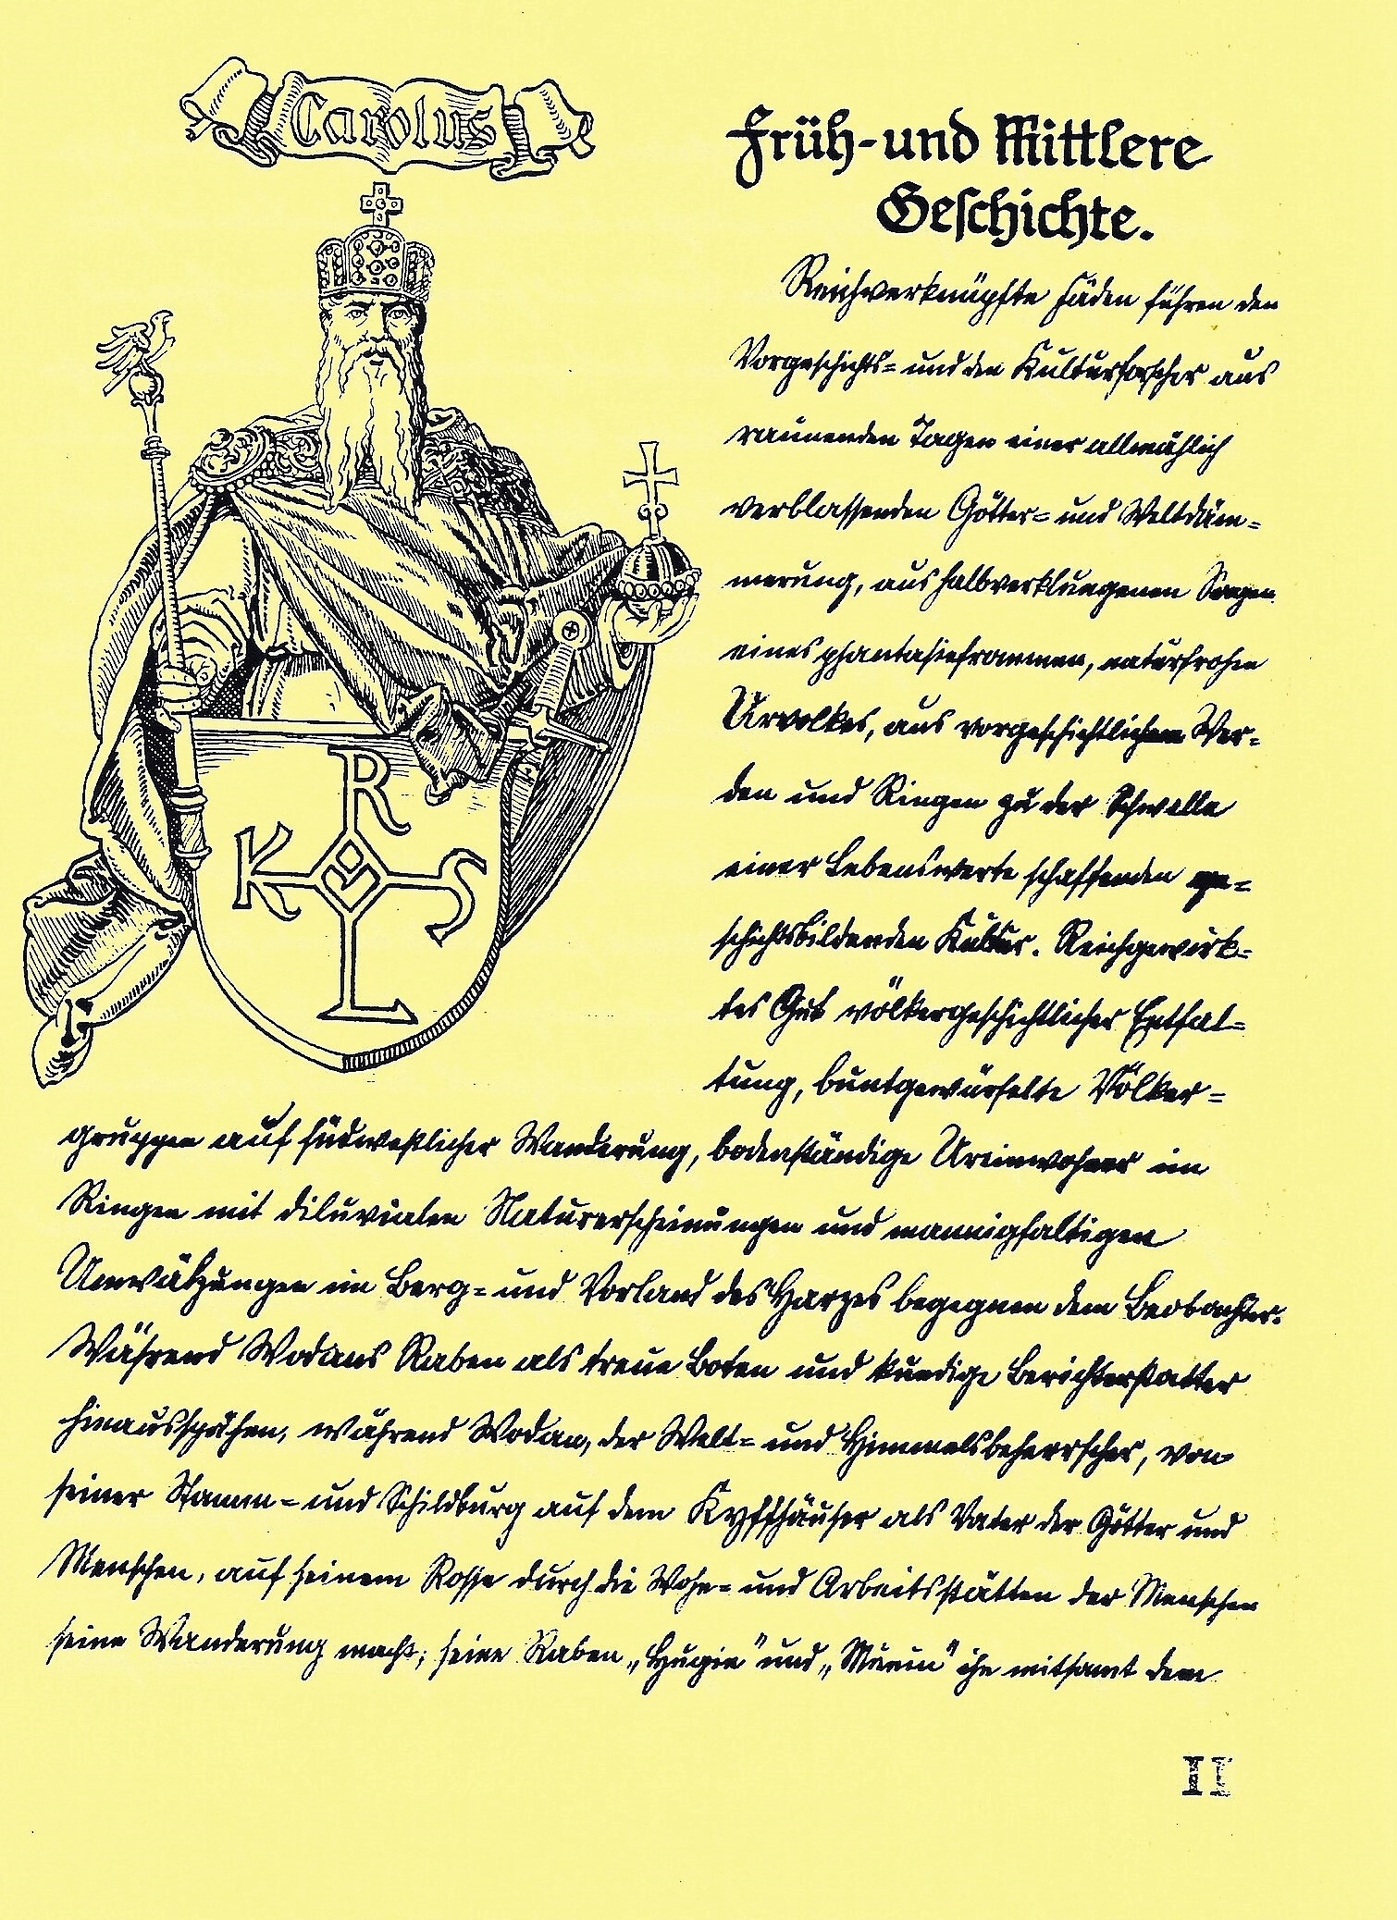 Carolus
Früh- und Mittlere
Geschichte.
Reichverknüpfte Fäden führen den
Vorgeschichts= und den Kulturforscher aus
raunenden Tagen einer allmählich
verblassenden Götter= und Weltdäm=
merung, aus halbverklungenen Sagen
eines phantasiefrommen, naturfrohen
Urvolkes, aus vorgeschichtlichem Wer=
den und Ringen zu der Schwelle
einer Lebenswerte schaffenden ge=
schichtsbildenden Kultur. Reichgewirk=
tes Gut völkergeschichtlicher Entfal=
tung, buntgewürfelte Völker=
gruppen auf südwestlicher Wanderung, bodenständige Ureinwohner im
Ringen mit diluvialen Naturerscheinungen und mannigfaltigen
Umwälzungen im Berg= und Vorland des Harzes begegnen dem Beobachter.
Während Wodans Raben als treue Boten und kundige Berichterstatter
hinausspähen, während Wodan, der Welt= und Himmelsbeherrscher, von
seiner Stamm= und Schildburg auf dem Kyffhäuser als Vater der Götter und
Menschen, auf seinem Rosse durch die Wohn= und Arbeitsstätten der Menschen
seine Wanderung macht; seine Raben „Hugin" und „Munin" ihn mitsamt dem
R
K S
L
II